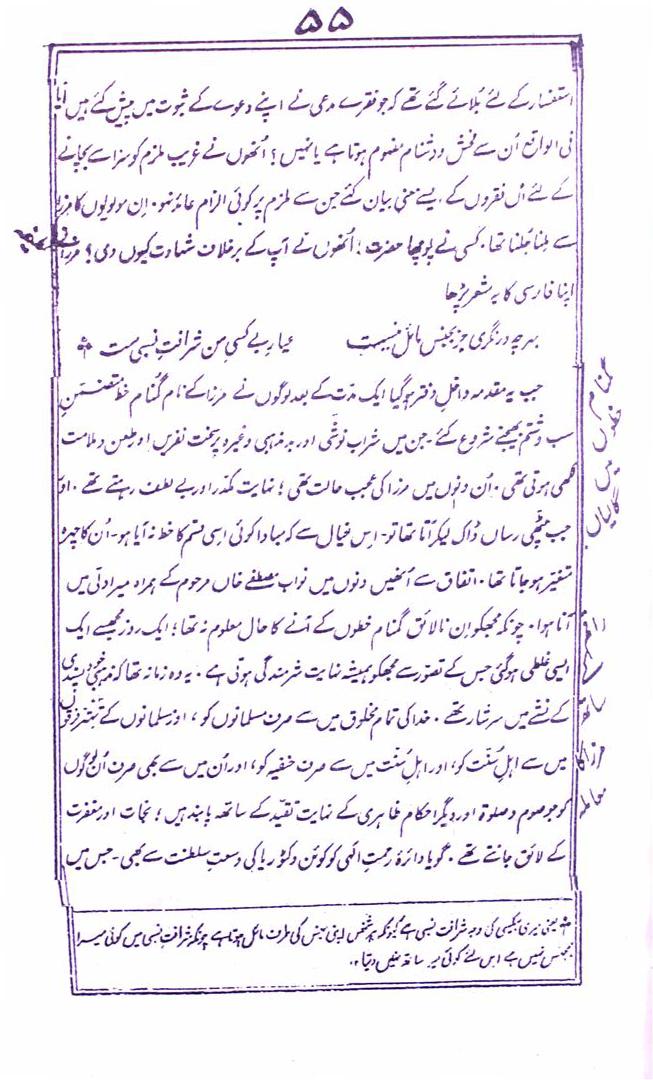 ۵۵
استفسار کے لئے بُلائے گئے تھے کہ جو فقرے مدعی نے اپنے دعوے کے ثبوت میں پیش کئے ہیں آیا
فی الواقع اُن سے فحش و دشنام مفہوم ہوتا ہے یا نہیں؟ اُنھوں نے غریب ملزم کو سزا سے بچانے
کے لئے اُن فقروں کے ایسے معنی بیان کئے جن سے ملزم پر کوئی الزام عائد نہو۔ اِن مولویوں کا مرزا
سے ملنا جُلنا تھا۔ کسی نے پوچھا حضرت! اُنھوں نے آپ کے برخلاف شہادت کیوں دی؟ مرزا نے
اپنا فارسی کا یہ شعر پڑھا
بہرچہ درنگری جز بجنس مائل نیست عیارِ بے کسیِ من شرافتِ نسبی ست
جب یہ مقدمہ داخلِ دفتر ہوگیا ایک مدت کے بعد لوگوں نے مرزا کے نام گمنام خط متضمن
سب و شتم بھیجنے شروع کئے۔ جن میں شراب نوشی اور بدمذہبی وغیرہ پر سخت نفریں اور طعن و ملامت
لکھی ہوتی تھی۔ اُن دنوں میں مرزا کی عجب حالت تھی؛ نہایت مکدّر اور بے لطف رہتے تھے۔ اور
جب چٹھی رساں ڈاک لیکر آتا تھا تو۔ اس خیال سے کہ مبادا کوئی اسی قسم کا خط نہ آیا ہو۔ اُن کا چہرہ
متغیر ہو جاتا تھا۔ اتفاق سے اُنھیں دنوں میں نواب مصطفےٰ خاں مرحوم کے ہمراہ میرا دلّی میں
آنا ہوا۔ چونکہ مجھکو اِن نالائق گمنام خطوں کے آنے کا حال معلوم نہ تھا؛ ایک روز مجھسے ایک
ایسی غلطی ہوگئی جس کے تصوّر سے مجھکو ہمیشہ نہایت شرمندگی ہوتی ہے۔ یہ وہ زمانہ تھا کہ مذہبی خودپسندی
کے نشے میں سرشار تھے۔ خدا کی تمام مخلوق میں سے صرف مسلمانوں کو، اور مسلمانوں کے تہتّر فرقوں
میں سے اہلِ سُنّت کو، اور اہلِ سُنّت میں سے صرف حنفیہ کو، اور اُن میں سے بھی صرف اُن لوگوں
کو جو صوم و صلوٰۃ اور دیگر احکام ظاہری کے نہایت تقیّد کے ساتھ پابند ہیں؛ نجات اور مغفرت
کے لائق جانتے تھے۔ گویا دائرۂ رحمتِ الٰہی کوئن وکٹوریا کی وسعتِ سلطنت سے بھی۔ جس میں
گمنام خطوں میں گالیاں
راقم کے ساتھ مرزا کا معاملہ
یعنی میری بیکسی کی وجہ شرافت نسبی ہے کیونکہ ہر شخص اپنی جنس کی طرف مائل ہوتا ہے چونکہ شرافتِ نسبی میں کوئی میرا
ہمجنس نہیں ہے اس لئے کوئی میرا ساتھ نہیں دیتا۔